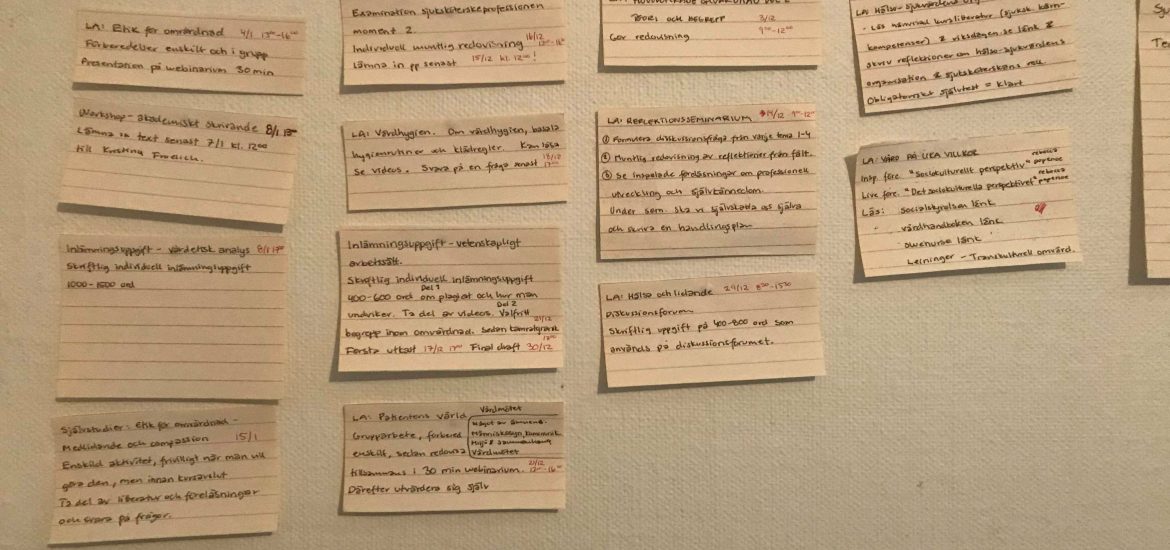 LA: Etik för omvårdnad 4/1 13⁰⁰-16⁰⁰
Förberedelser enskilt och i grupp
Presentation på webinarium 30 min
Workshop - akademiskt skrivande 8/1
Lämna in text senast 7/1 kl. 12⁰⁰
till Kristina
Inlämningsuppgift - vårdetisk analys 8/1 17⁰⁰
Skriftlig individuell inlämningsuppgift
1000-1500 ord
Självstudier: Etik för omvårdnad -
Medlidande och compassion 15/1
Enskild aktivitet, frivilligt när man vill
göra den, men innan kursavslut
Ta del av litteratur och föreläsningar
och svara på frågor.
Examination sjuksköterskeprofessionen
moment 2.
Individuell muntlig redovisning 16/12
Lämna in pp senast 15/12 kl. 12⁰⁰!
LA: Vårdhygien. Om vårdhygien, basala
hygienrutiner och klädregler. Kan läsa
Se videos. Svara på en fråga senast 18/12 17⁰⁰
Inlämningsuppgift - vetenskapligt
arbetssätt.
Skriftlig individuell inlämningsuppgift
Del 1
400-600 ord om plagiat och hur man
Del 2
undviker. Ta del av videos. Valfritt
21/12
begrepp inom omvårdnad. Sedan kamratgransk
12⁰⁰
Första utkast 17/12 17⁰⁰ Final draft 30/12
LA: Patientens värld Vårdmötet
Grupparbete, förbered
enskilt, sedan redovisa
Något av ämnena:
Människosyn, kommunik
Miljö & sammanhang
Vårdmötet
tillsammans i 30 min webinarium. 21/12
Därefter utvärdera sig själv
TEORI och BEGREPP 3/12
Gör redovisning 9⁰⁰-12⁰⁰
LA: REFLEKTIONSSEMINARIUM 14/12 9⁰⁰-12⁰⁰
① Formulera diskussionsfråga från varje tema 1-4
② Muntlig redovisning av reflektioner från fält.
③ Se inspelade föreläsningar om professionell
utveckling och självkännedom.
Under sem. ska vi självskatta oss själva
och skriva en handlingsplan
LA: Hälsa och lidande 29/12 8⁰⁰-15⁰⁰
Diskussionsforum
Skriftlig uppgift på 400-800 ord som
används på diskussionsforumet.
LA: Hälso-sjukvårdens
- Läs kursliteratur (sjuksk. kärn-
kompetenser) & riksdagen.se länk &
skriv reflektioner om hälso-sjukvårdens
organisation & sjuksköterskans roll.
Obligatoriskt självtest = klart
LA: VÅRD PÅ LIKA VILLKOR
Insp. före. "Sociokulturellt perspektiv" rebecca
Live före. "Det sociokulturella perspektivet" rebecca
Läs: Socialstyrelsen länk
" vårdhandboken länk
länk
Leininger - Transkulturell omvård.